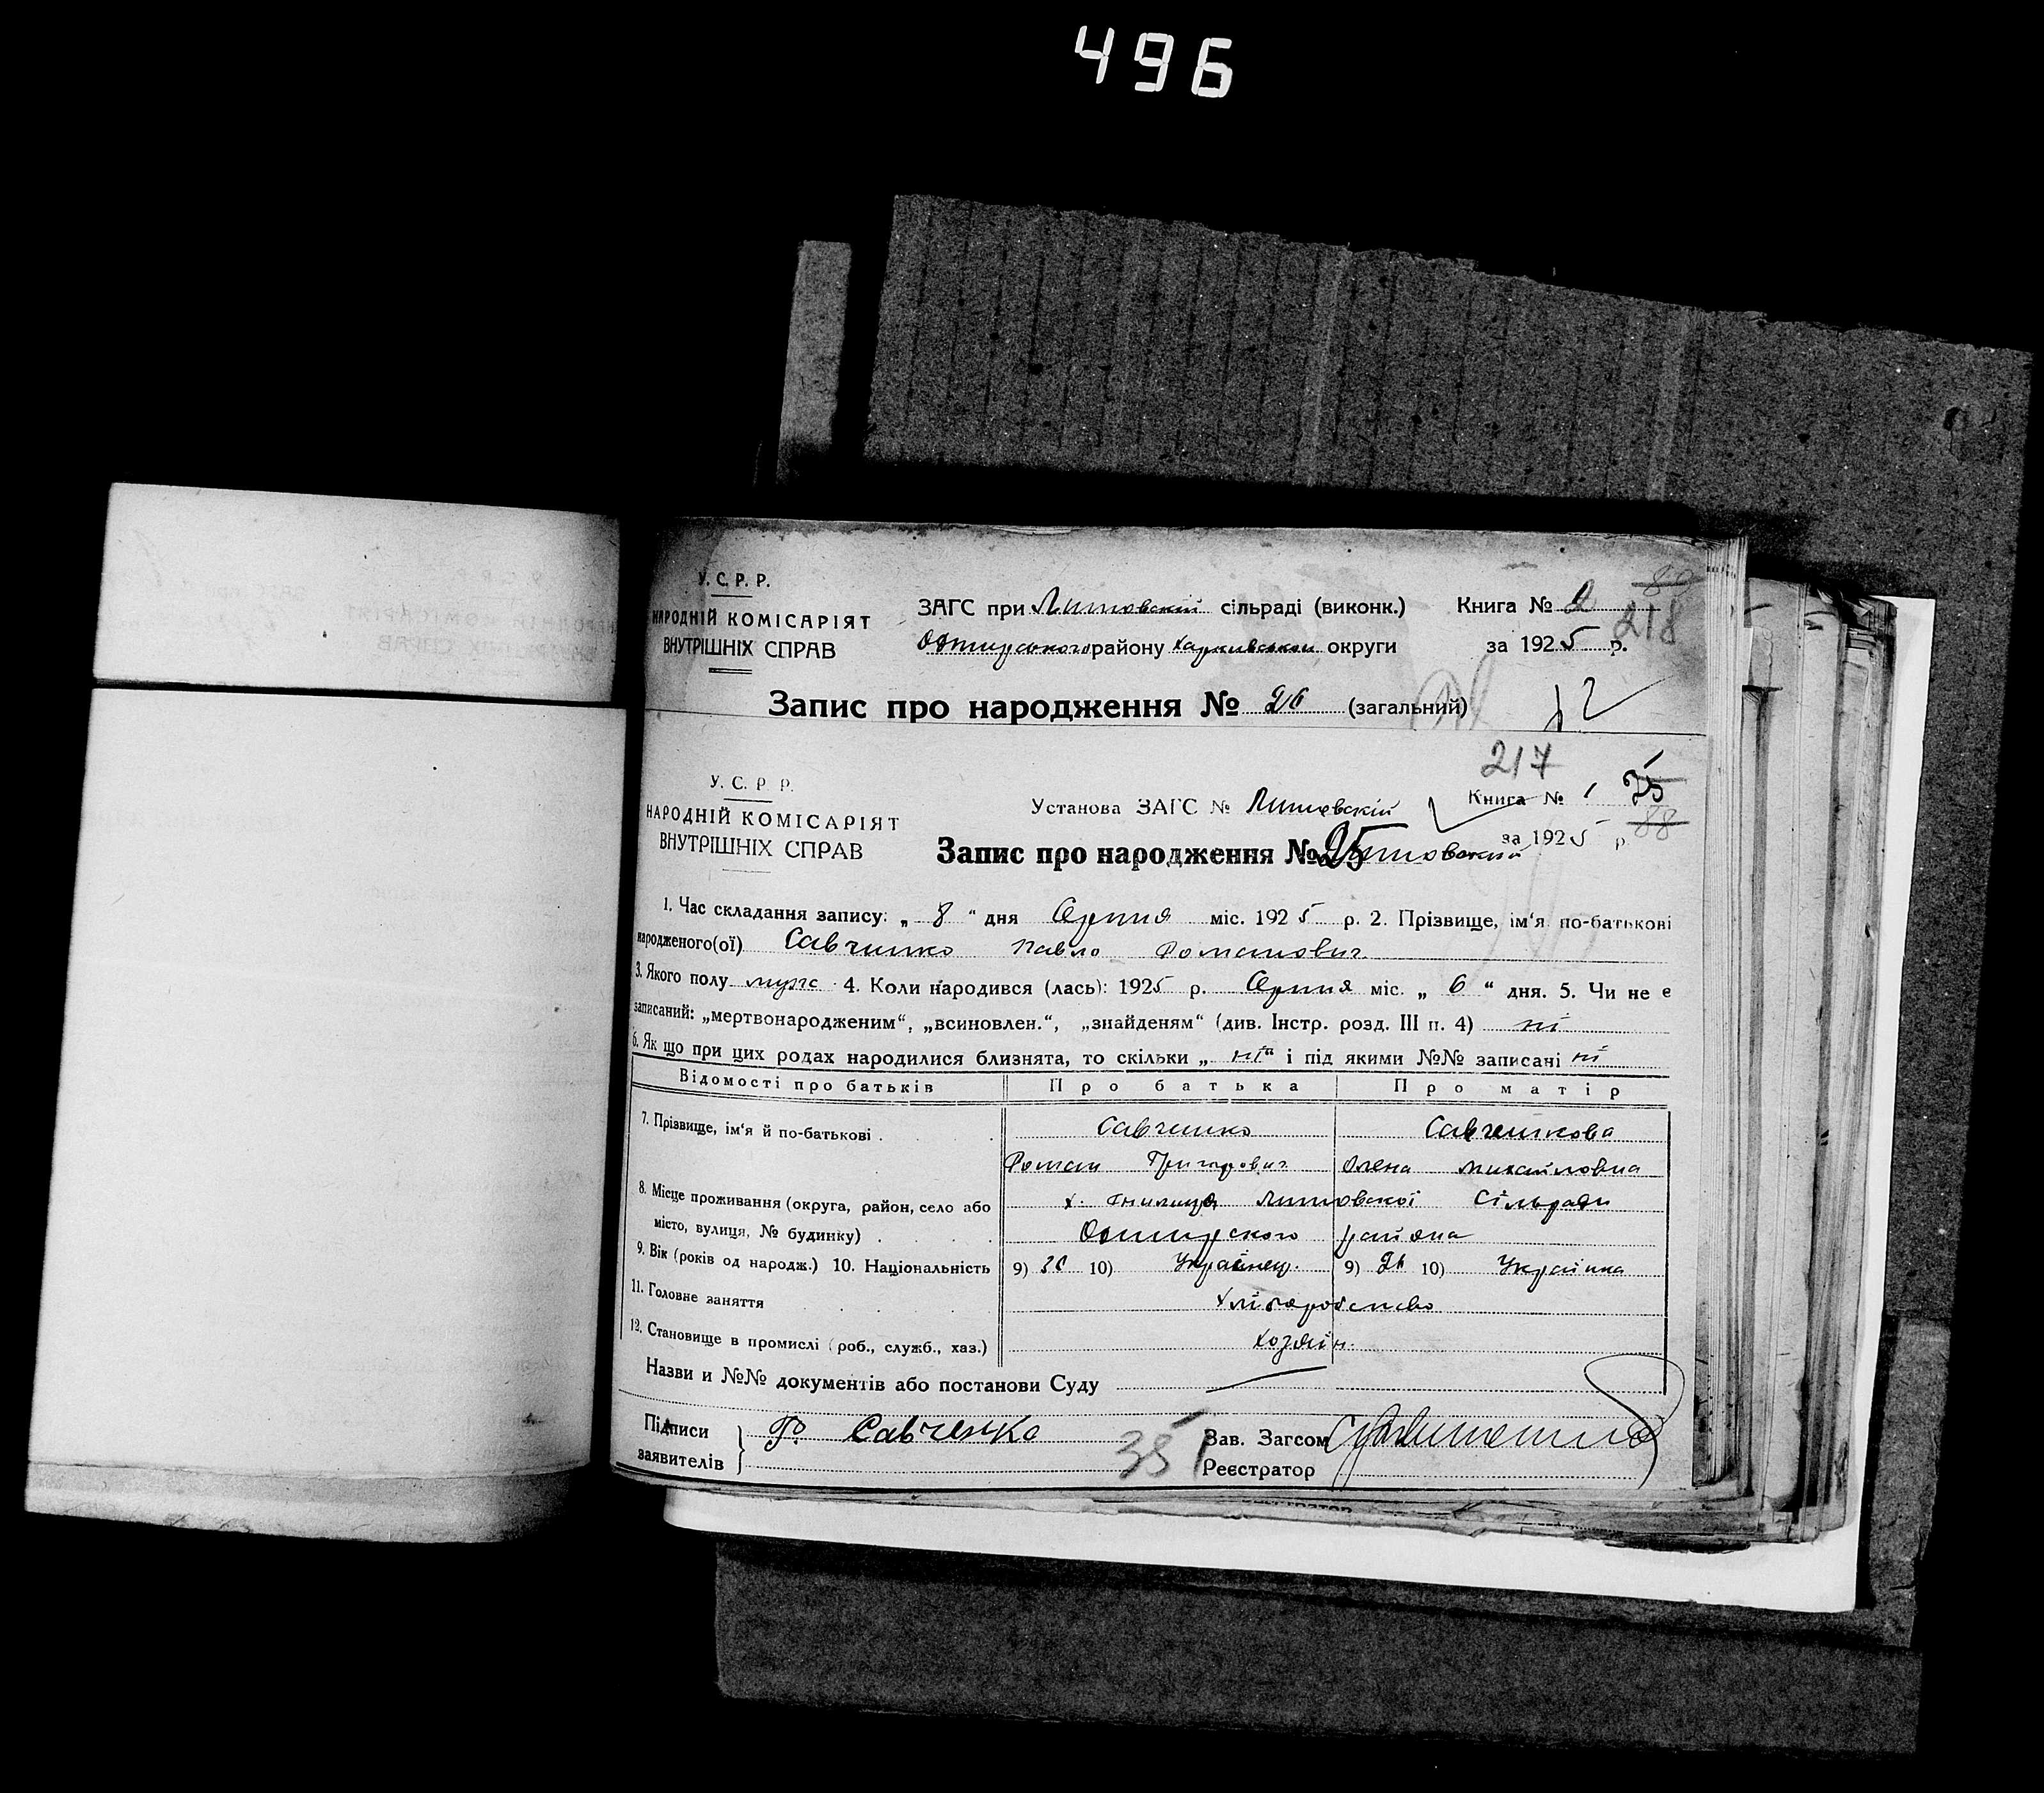 496
У. С. Р. Р.
НАРОДНІЙ КОМІСАРІЯТ
ВНУТРІШНІХ СПРАВ
ЗАГС при Литовскій сільраді (виконк.)
району Харкивськои округи
Книга № 2
80
218
за 1925 р.
Запис про народження № 26 (загальний)
217
У. С. Р. Р.
НАРОДНІЙ КОМІСАРІЯТ
ВНУТРІШНІХ СПРАВ
Установа ЗАГС № Литовскій
Книга № 1
75
за 1925 р.
88
Запис про народження № 25 Литовский
1. Час складання запису: „ 8 “ дня Серпня міс. 1925 р. 2. Прізвище, ім‘я по-батькові
народженого(ої) Савченко Павло Романович
3. Якого полу муж 4. Коли народився (лась): 1925 р. Серпня міс. „ 6 “ дня. 5. Чи не є
записаний: „мертвонародженим“, „всиновлен.“, „знайденям“ (див. Інстр. розд. III п. 4) ні
6. Як що при цих родах народилися близнята, то скільки „ ні “ і під якими №№ записані ні
Відомості про батьків Про батька Про матір
7. Прізвище, ім‘я й по-батькові . Савченко Савченкова
Роман Григорович Олена Михайловна
8. Місце проживання (округа, район, село або х. Гнилиця Литовскої Сільради
місто, вулиця, № будинку) . района
9. Вік (років од народж.) 10. Національність 9) 10) Українец. 9) 10) Українка
11. Головне заняття Хліборобство
12. Становище в промислі (роб., служб., хаз.) хозяін.
Назви и №№ документів або постанови Суду
Підписи
заявителів
Р. Савченко
351
Зав. Загсом
Реєстратор